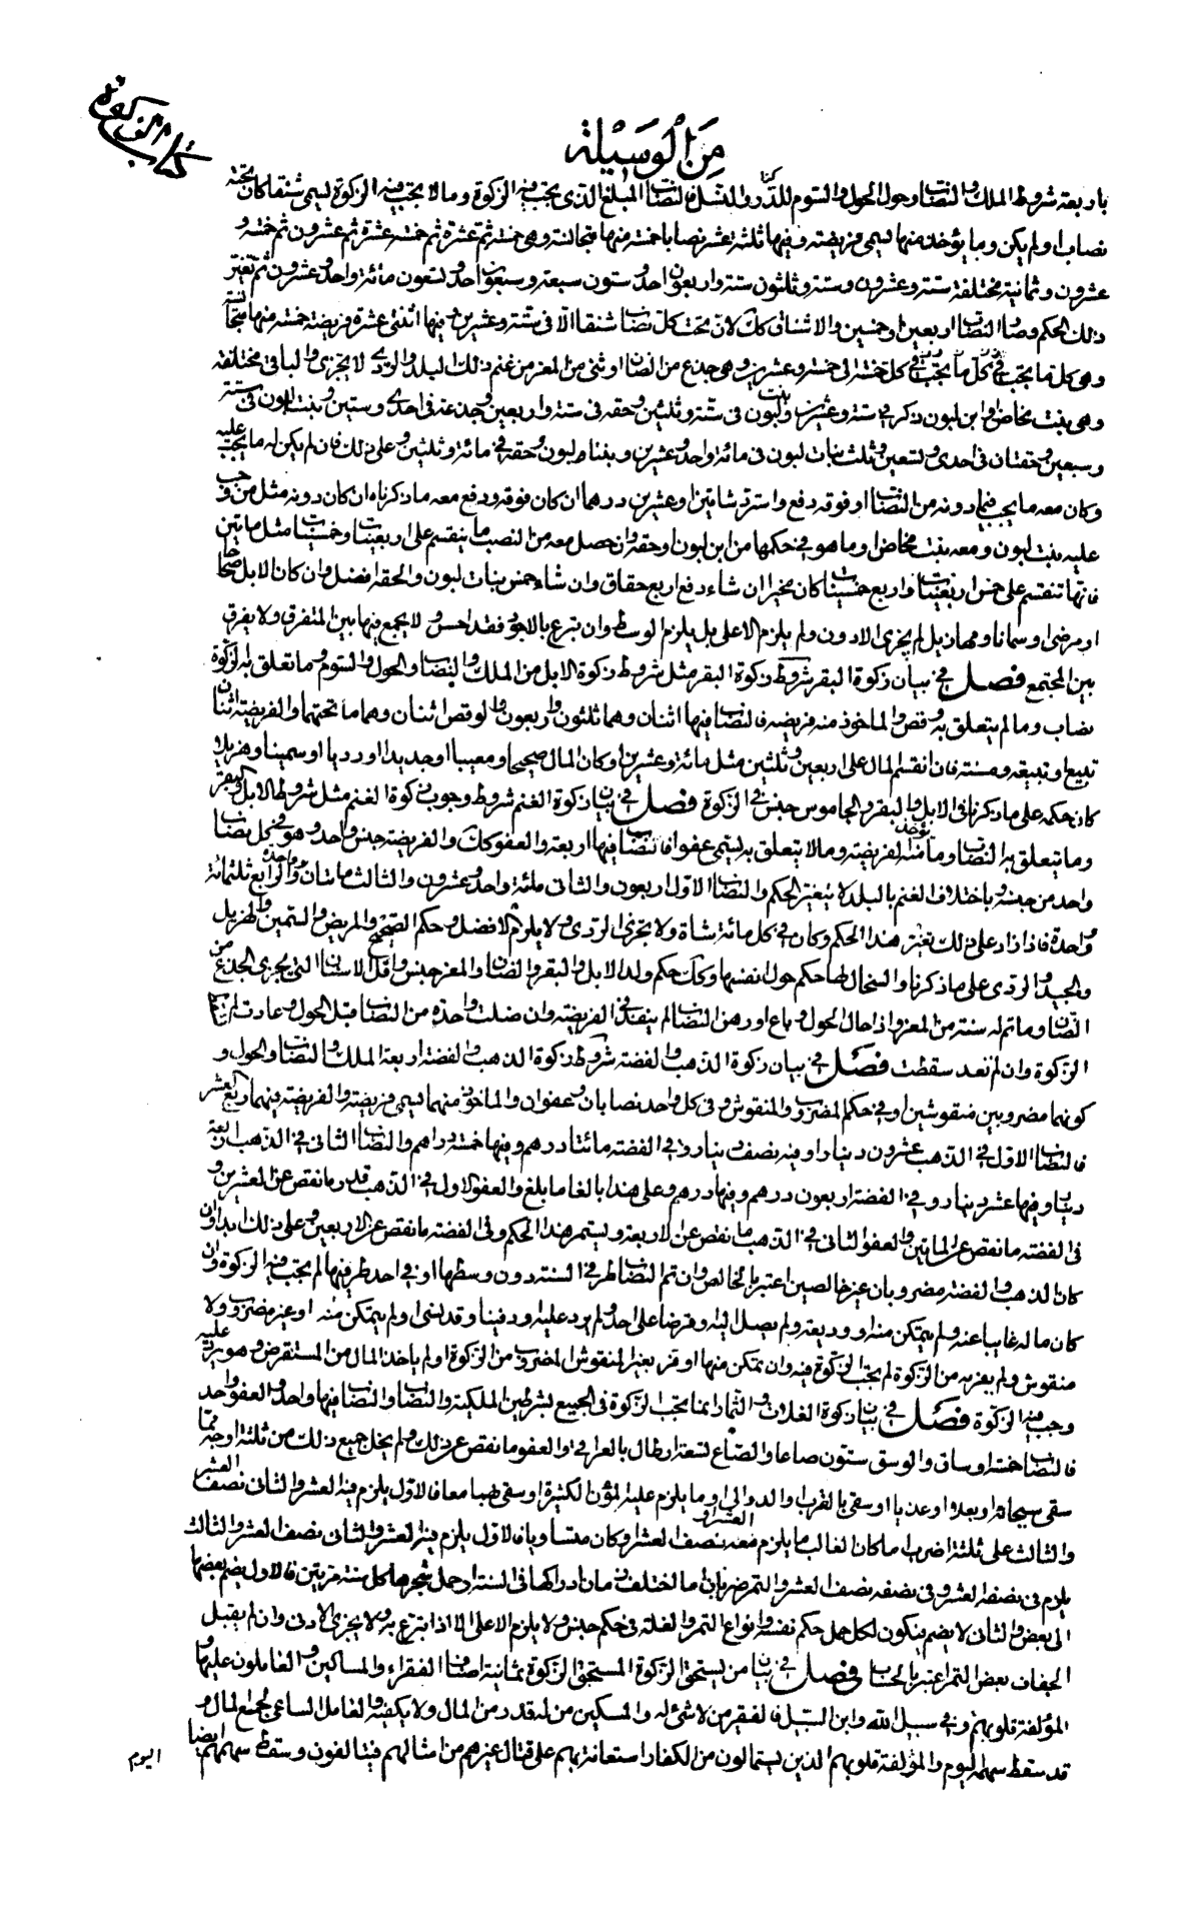 كتاب الزكوة
مِنَ الْوَسِيْلَة
باربعة شروط الملك والنصاب وحول الحول والسوم للدر والنسل فالنصاب المبلغ الذى يجب فيه الزكوة وما لا يجب فيه الزكوة ليسمى شنقا كان تحته
نصاب او لم يكن وما يؤخذ منها يسمى فريضة وفيها ثلثة عشر نصابا خمسة منها متجانسة وهى خمسة ثم عشرة ثم خمسة عشرة ثم عشرون ثم خمسة و
عشرون وثمانية مختلفة ستة وعشرون وستة وثلثون ستة واربعون احد وستون سبعة وسبعون احد وتسعون مائة واحد وعشرون ثم تغير
ذلك الحكم وصار النصاب اربعين وخمسين والاشناق كك لان تحت كل نصاب شنقا الا فى ستة وعشرين وفيها اثنتى عشرة فريضة خمسة منها متجانسة
وهى كل ما يجب فى كل خمسة الى خمسة وعشرين وهى جذع من الضان او ثنى من المعز من غنم ذلك البلد والردى لا يجزى والباقى مختلفة
وهى بنت مخاض او ابن لبون ذكر فى ستة وعشرين وبنت لبون فى ستة وثلثين وحقة فى ستة واربعين وجذعة فى احدى وستين وبنتا لبون فى ستة
وسبعين وحقتان فى احدى وتسعين وثلث بنات لبون فى مائة واحد وعشرين وبنتا لبون وحقة فى مائة وثلثين وعلى ذلك فان لم يكن له ما يجب عليه
وكان معه ما يجب فيما دونه من النصاب او فوقه دفع واسترد شاتين او عشرين درهما ان كان فوقه ودفع معه ما ذكرناه ان كان دونه مثل من وجب
عليه بنت لبون ومعه بنت مخاض او ما هو فى حكمها من ابن لبون او حقة وان حصل معه من النصب ما ينقسم على اربعينات وخمسينات مثل مائتين
فانها تنقسم على خمس اربعينات واربع خمسينات كان مخيرا ان شاء دفع اربع حقاق وان شاء خمس بنات لبون والحقة افضل وان كان الابل صحاحا
او مرضى او سمانا ومهازيل لم يجزى الادون ولم يلزم الاعلى بل يلزم الوسط وان تبرع بالاجود فقد احسن ولا يجمع فيها بين المتفرق ولا يفرق
بين المجتمع فصل فى بيان زكوة البقر شروط زكوة البقر مثل شروط زكوة الابل من الملك والنصاب والحول والسوم وما تعلق به الزكوة
نصاب وما لم يتعلق به وقص والماخوذ منه فريضة فالنصاب فيها اثنان وهما ثلثون واربعون والوقص اثنان وهما ما تحتهما والفريضة اثنان
تبيع او تبيعة ومسنة فان انقسم المال على اربعين وثلثين مثل مائة وعشرين او كان المال صحيحا ومعيبا او جديدا او رديا او سمينا وهزيلا
كان حكمه على ما ذكرنا فى الابل والبقر والجاموس جنس فى الزكوة فصل فى بيان زكوة الغنم شروط وجوب زكوة الغنم مثل شروط الابل والبقر
وما يتعلق به النصاب وما يؤخذ منه الفريضة وما لا يتعلق به ليسمى عفوا فالنصاب فيها اربعة والعفو كك والفريضة جنس واحد وهو فى كل نصاب
واحد من جنسه وباختلاف الغنم بالبلد لا يتغير الحكم والنصاب الاول اربعون والثانى مائة واحد وعشرون والثالث مائتان وواحدة والرابع ثلثمائة
وواحدة فاذا زاد على ذلك تغير هذا الحكم وكان فى كل مائة شاة ولا يجزى الردى ولا يلزم الافضل وحكم الصحيح والمريض والسمين والهزيل
والجيد والردى على ما ذكرنا والسخال لها حكم حول انفسها وكك حكم ولد الابل والبقر والضان والمعز جنس واقل الاسنان التى يجزى الجذع من
الضان وما تم له سنة من المعز واذا حال الحول وباع او رهن النصاب لم ينعقد فى الفريضة وان ضلت واحدة من النصاب قبل الحول وعادت لزمت
الزكوة وان لم تعد سقطت فصل فى بيان زكوة الذهب والفضة شروط زكوة الذهب والفضة اربعة الملك والنصاب والحول و
كونهما مضروبين منقوشين او فى حكم المضروب والمنقوش وفى كل واحد نصابان وعفوان والماخوذ منهما يسمى فريضة والفريضة فيهما ربع العشر
فالنصاب الاول فى الذهب عشرون دينارا وفيه نصف دينار وفى الفضة مائتا درهم وفيها خمسة دراهم والنصاب الثانى فى الذهب اربعة
دنانير وفيها عشر دينار وفى الفضة اربعون درهم وفيها درهم وعلى هذا بالغا ما بلغ والعفو الاول فى الذهب قدر ما نقص عن العشرين و
فى الفضة ما نقص عن المائتين والعفو الثانى فى الذهب ما نقص عن الاربعة ويستمر هذا الحكم وفى الفضة ما نقص عن الاربعين وعلى ذلك ابدا وان
كان الذهب والفضة مضروبان غير خالصين اعتبر بالخالص وان تم النصاب طرفى السنة دون وسطها او فى احد طرفيها لم يجب فيه الزكوة وان
كان ماله غايبا عنه ولم يتمكن منه او وديعة ولم يصل اليه وقرضا على احد ولم يرد عليه او دفينا وقد نسى او لم يتمكن منه او غير مضروب ولا
منقوش ولم يفر به من الزكوة لم يجب الزكوة فيه وان تمكن منها او فر بغير المنقوش المضروب من الزكوة او لم ياخذ المال من المستقرض وهو يرد عليه
وجب فيه الزكوة فصل فى بيان زكوة الغلات والثمار انما تجب الزكوة فى الجميع بشرطين الملكية والنصاب والنصاب فيها واحد والعفو واحد
فالنصاب خمسة اوساق والوسق ستون صاعا والصاع تسعة ارطال بالعراقى والعفو ما نقص عن ذلك ولم يخل جميع ذلك من ثلثة اوجه مما
سقى سيحا او بعلا او عذيا او سقى بالغرب والدوالى او ما يلزم عليه المؤن الكثيرة او سقى بهما معا فالاول يلزم فيه العشر والثانى نصف العشر
والثالث على ثلثة اضرب اما كان الغالب ما يلزم معه العشر او نصف العشر او كان متساويا فالاول يلزم فيه العشر والثانى نصف العشر والثالث
يلزم فى نصفه العشر وفى نصفه نصف العشر والتمر ضربان ما اختلف زمان ادراكها فى السنة او حمل شجرها كل سنة مرتين فالاول يضم بعضها
الى بعض والثانى لا يضم فيكون لكل حمل حكم نفسه وانواع التمر والغلة فى حكم جنس ولا يلزم الاعلى الا اذا تبرع به ولا يجزى الادنى وان لم يقبل
الجفاف بعض التمر اعتبر بالحساب فصل فى بيان من يستحق الزكوة المستحق الزكوة ثمانية اصناف الفقراء والمساكين والعاملون عليها و
المؤلفة قلوبهم وفى سبيل الله وابن السبيل فالفقير من لا شئ له والمسكين من له قدر من المال ولا يكفيه والعامل الساعى لجمع المال و
قد سقط سهمه اليوم والمؤلفة قلوبهم الذين يستمالون من الكفار استعانة بهم على قتال غيرهم من امثالهم فيتالفون وسقط سهمهم ايضا
اليوم